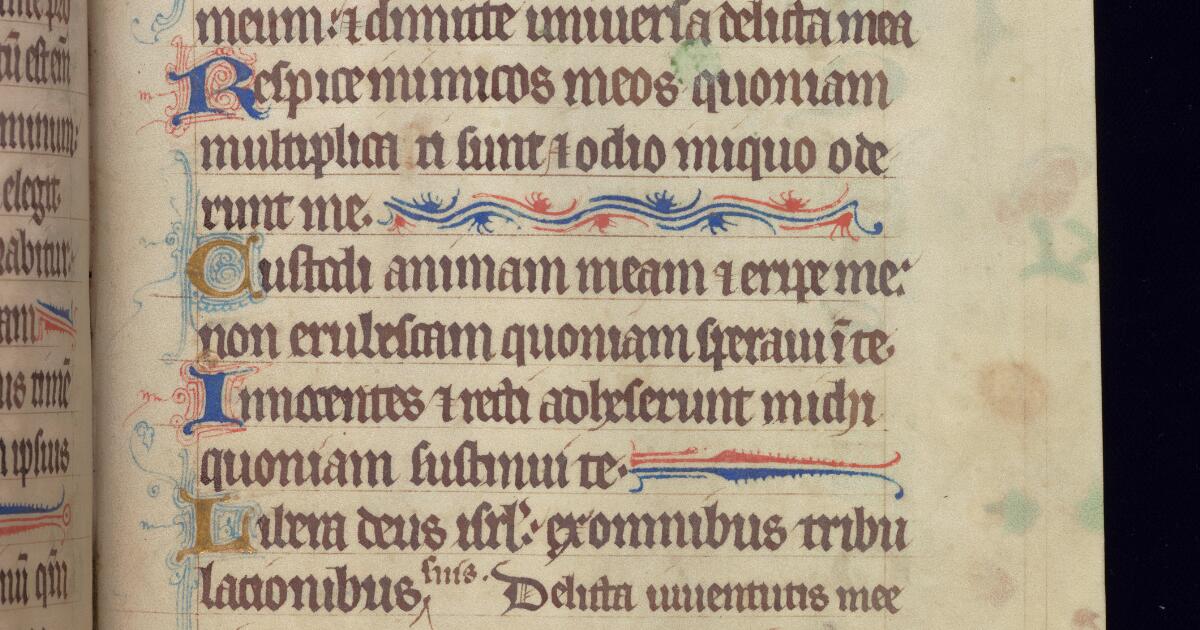 meum: ⁊ dimitte universa delicta mea
Respice inimicos meos quoniam
multiplica ti sunt ⁊ odio iniquo ode
runt me.
Custodi animam meam ⁊ eripe me:
non erubescam quoniam speraui ĩ te.
Innocentes ⁊ recti adheserunt michi
quoniam sustinui te.
Libera deus isrl': ex omnibus tribu
lationibus suis. Delicta iuuentutis mee
elegit.
habitur:
ipsius